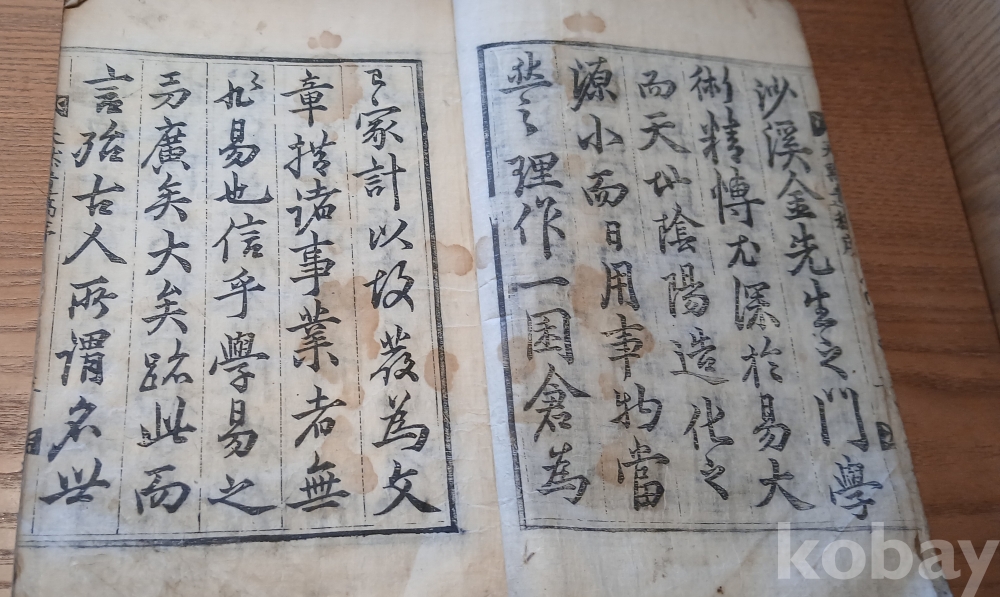 沙溪金先生之門學
術精愽尤深於易大
而天地陰陽造化之
源小而日用事物當
然之理作一囷倉為
家計以故發為文
章措諸事業者無
易也信乎學易之
功廣矣大矣跡此而
言殆古人所謂名世
kobay